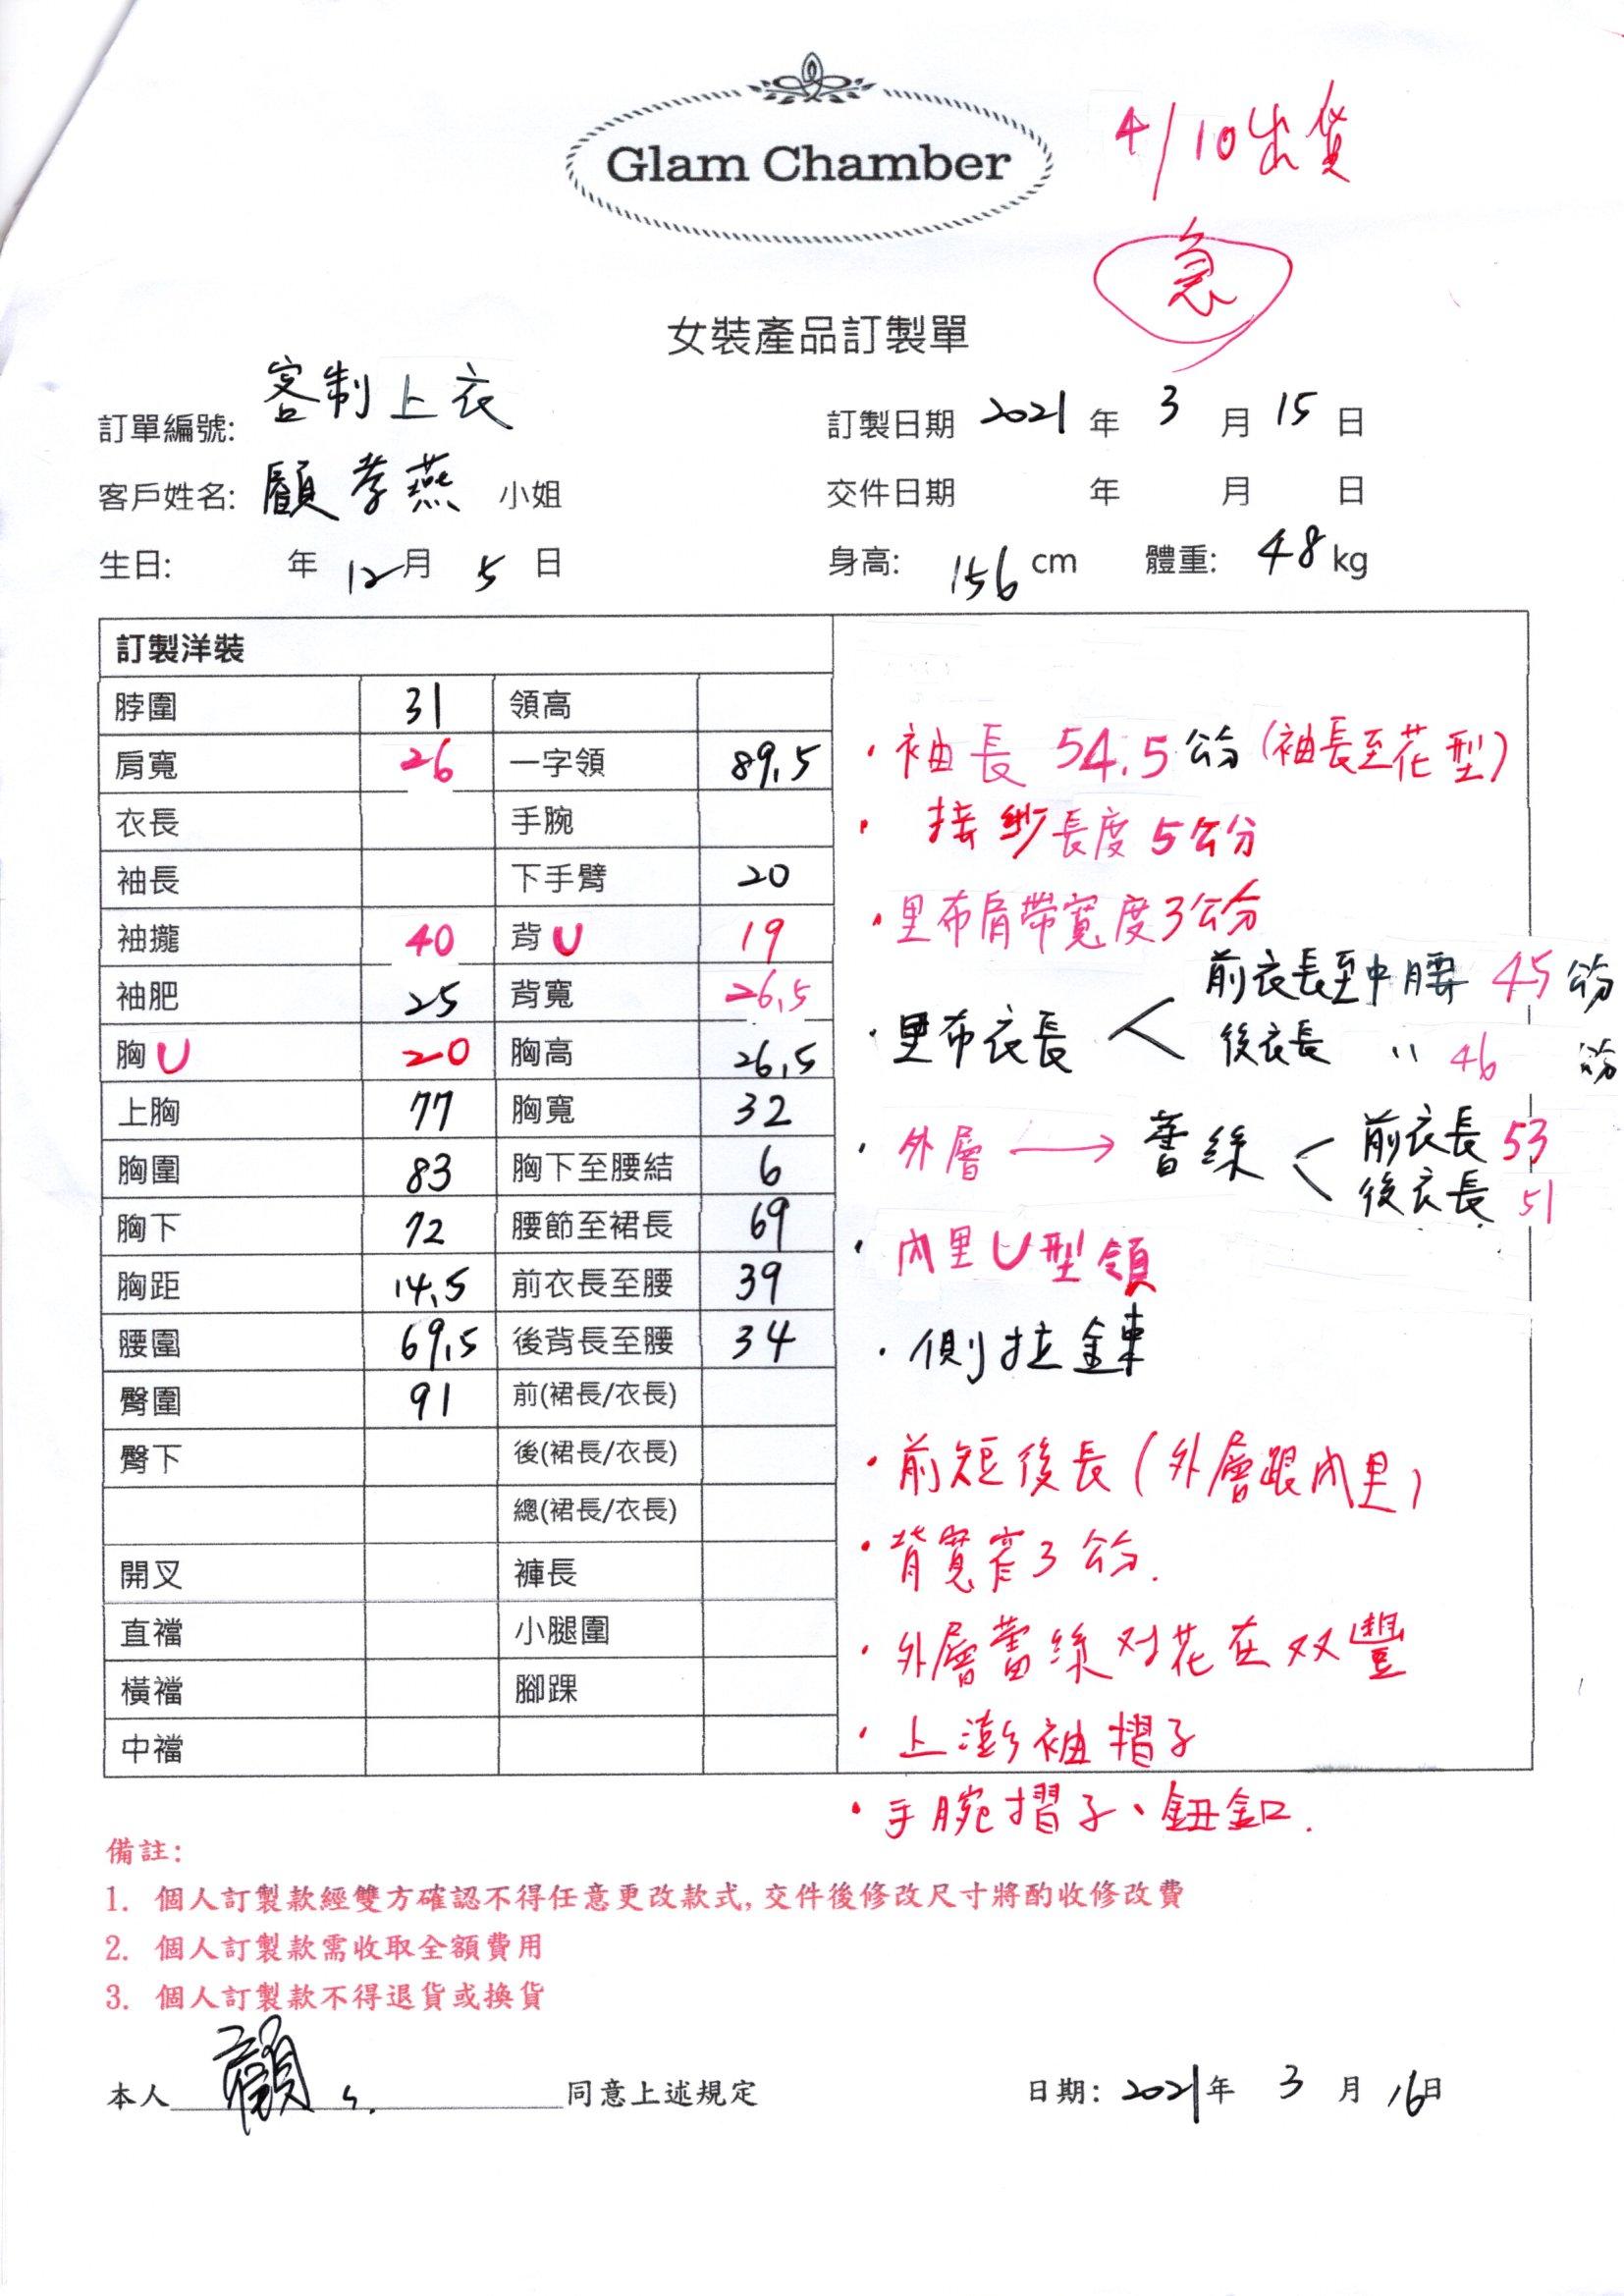 Glam Chamber
4/10出貨
急
女裝產品訂製單
訂單編號: 客制上衣
訂製日期 2021 年 3 月 15 日
客戶姓名: 顧孝燕 小姐
交件日期 年 月 日
生日: 年 12 月 5 日
身高: 156 cm 體重: 48 kg
訂製洋裝
脖圍 31 領高
肩寬 26 一字領 89.5
衣長 手腕
袖長 下手臂 20
袖攏 40 背U 19
袖肥 25 背寬 26.5
胸U 20 胸高 26.5
上胸 77 胸寬 32
胸圍 83 胸下至腰結 6
胸下 72 腰節至裙長 69
胸距 14.5 前衣長至腰 39
腰圍 69.5 後背長至腰 34
臀圍 91 前(裙長/衣長)
臀下 後(裙長/衣長)
總(裙長/衣長)
開叉 褲長
直襠 小腿圍
橫襠 腳踝
中襠
·袖長 54.5 公分(袖長至花型)
·接紗長度 5公分
·里布肩帶寬度3公分
·里布衣長 < 前衣長至中腰 45 公分
後衣長 〃 46 公分
·外層 → 蕾絲 < 前衣長 53
後衣長 51
·內里U型領
·側拉鍊
·前短後長(外層跟內里)
·背寬窄3公分.
·外層蕾絲对花在双豐
·上澎袖摺子
·手腕摺子、鈕釦.
備註:
1. 個人訂製款經雙方確認不得任意更改款式, 交件後修改尺寸將酌收修改費
2. 個人訂製款需收取全額費用
3. 個人訂製款不得退貨或換貨
本人 顧 同意上述規定
日期: 2021年 3 月 16日